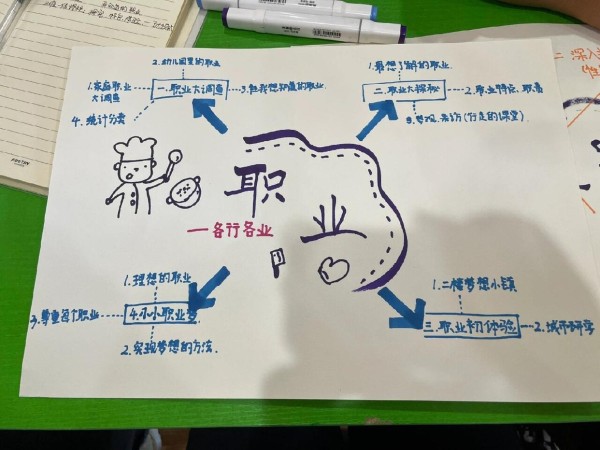 2.幼儿园里的职业
1.家庭职业
大调查
一.职业大调查
3.我想知道的职业
4.统计分类
1.最想了解的职业
二.职业大探秘
2.职业特点、职责
3.参观、采访(行走的课堂)
职业
——各行各业
1.理想的职业
3.尊重每个职业
4.小小职业梦
2.实现梦想的方法
1.二楼梦想小镇
三.职业初体验
2.城市研学